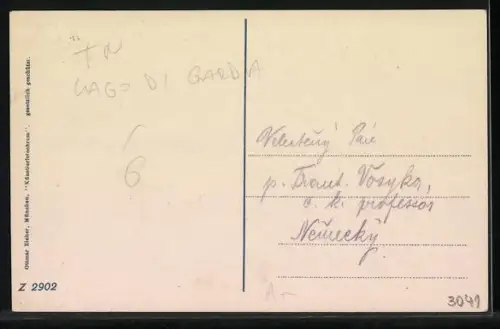 TN
LAGO DI GARDA
6
Ottmar Zieher, München, "Künstlerfotochrom". gesetzlich geschützt.
Z 2902
Velectěný Pán
p. Frant. Vosyka,
c. k. professor
Německý
A-
3041